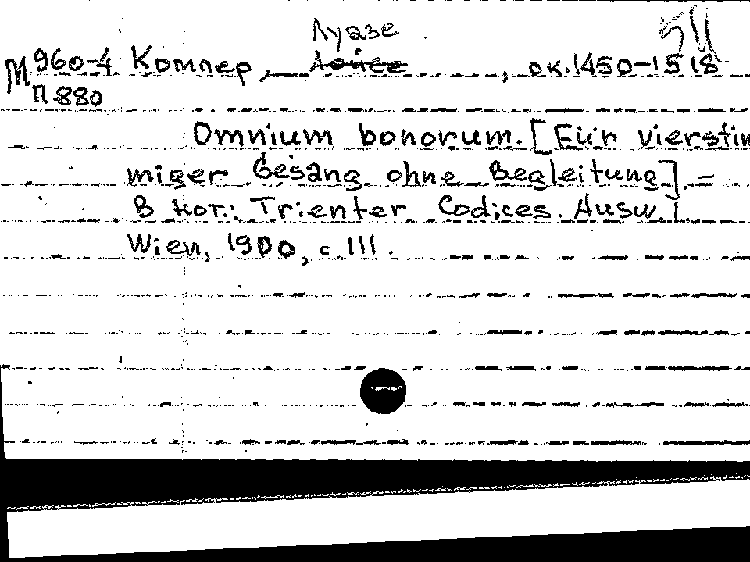 Луазе
М 960-4 Компер, , ок.1450-1518
П 880
Omnium bonorum. [Für vierstim
miger Gesäng ohne Begleitung]. =
В кот.: Trienter Codices. Ausw. I
Wien, 1900, с. 111.